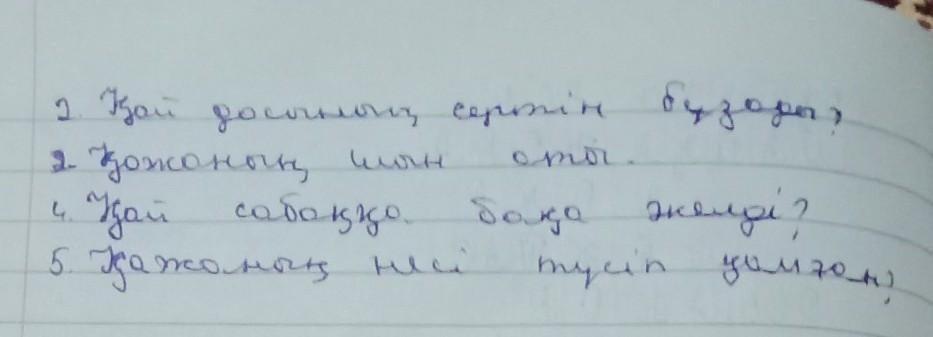 2. Қай досының сертін бұзады?
2. Қожаның шын аты.
4. Қай сабаққа бақа әкелді?
5. Қажаның несі түсіп қалған?